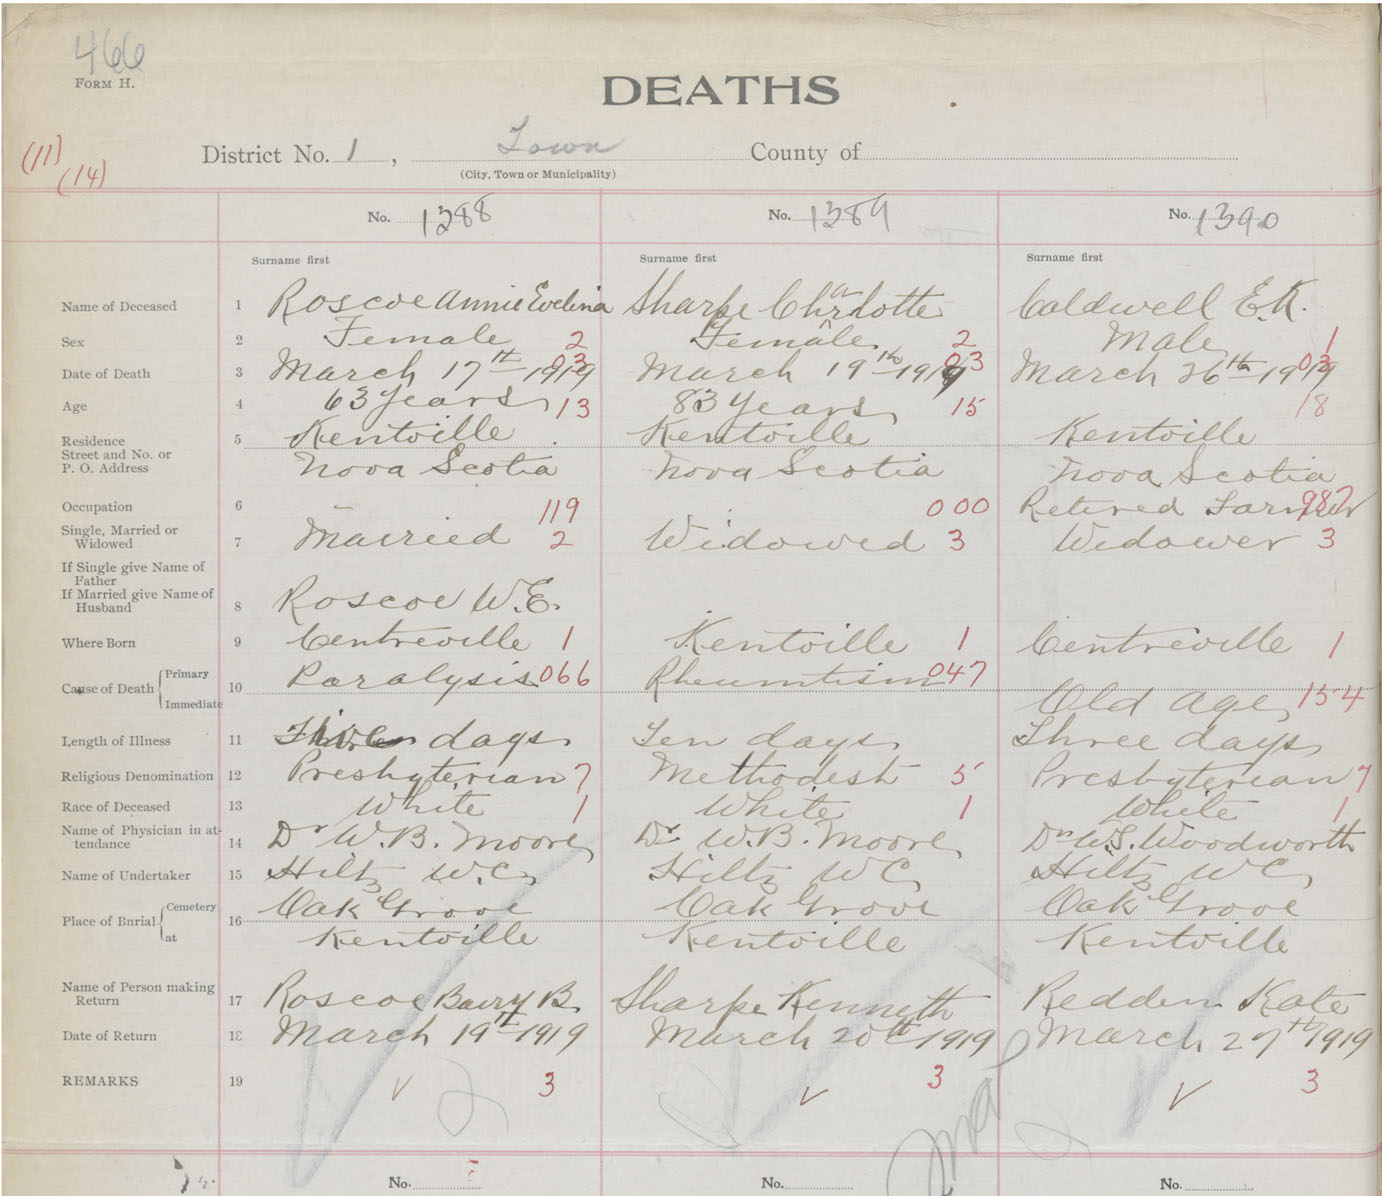 466
FORM H.
DEATHS
(11)
(14)
District No. 1, Town County of
(City, Town or Municipality)
No. 1388 No. 1389 No. 1390
Surname first Surname first Surname first
Name of Deceased 1 Roscoe Annie Evelina Sharpe Charlotte Caldwell E.K.
Sex 2 Female 2 Female 2 Male 1
Date of Death 3 March 17th 1919 03 March 19th 1919 03 March 26th 1919 03
Age 4 63 Years 13 83 Years 15 18
Residence
Street and No. or
P. O. Address
5 Kentville Kentville Kentville
Nova Scotia Nova Scotia Nova Scotia
Occupation 6 119 000 Retired Farmer 982
Single, Married or
Widowed
7 Married 2 Widowed 3 Widower 3
If Single give Name of
Father
If Married give Name of
Husband
8 Roscoe W.E.
Where Born 9 Centreville 1 Kentville 1 Centreville 1
Cause of Death Primary
Immediate
10 Paralysis 066 Rheumtism 047
Old Age 154
Length of Illness 11 days Ten days Three days
Religious Denomination 12 Presbyterian 7 Methodest 5 Presbyterian 7
Race of Deceased 13 White 1 White 1 White 1
Name of Physician in at-
tendance
14 Dr W.B. Moore Dr W.B. Moore Dr W.S. Woodworth
Name of Undertaker 15 Hiltz W.C. Hiltz W C Hiltz W C
Place of Burial Cemetery
at
16 Oak Grove Oak Grove Oak Grove
Kentville Kentville Kentville
Name of Person making
Return
17 Roscoe Barry B. Sharpe Kenneth Redden Kate
Date of Return 18 March 19th 1919 March 20th 1919 March 27th 1919
REMARKS 19 3 3 3
No. No. No.